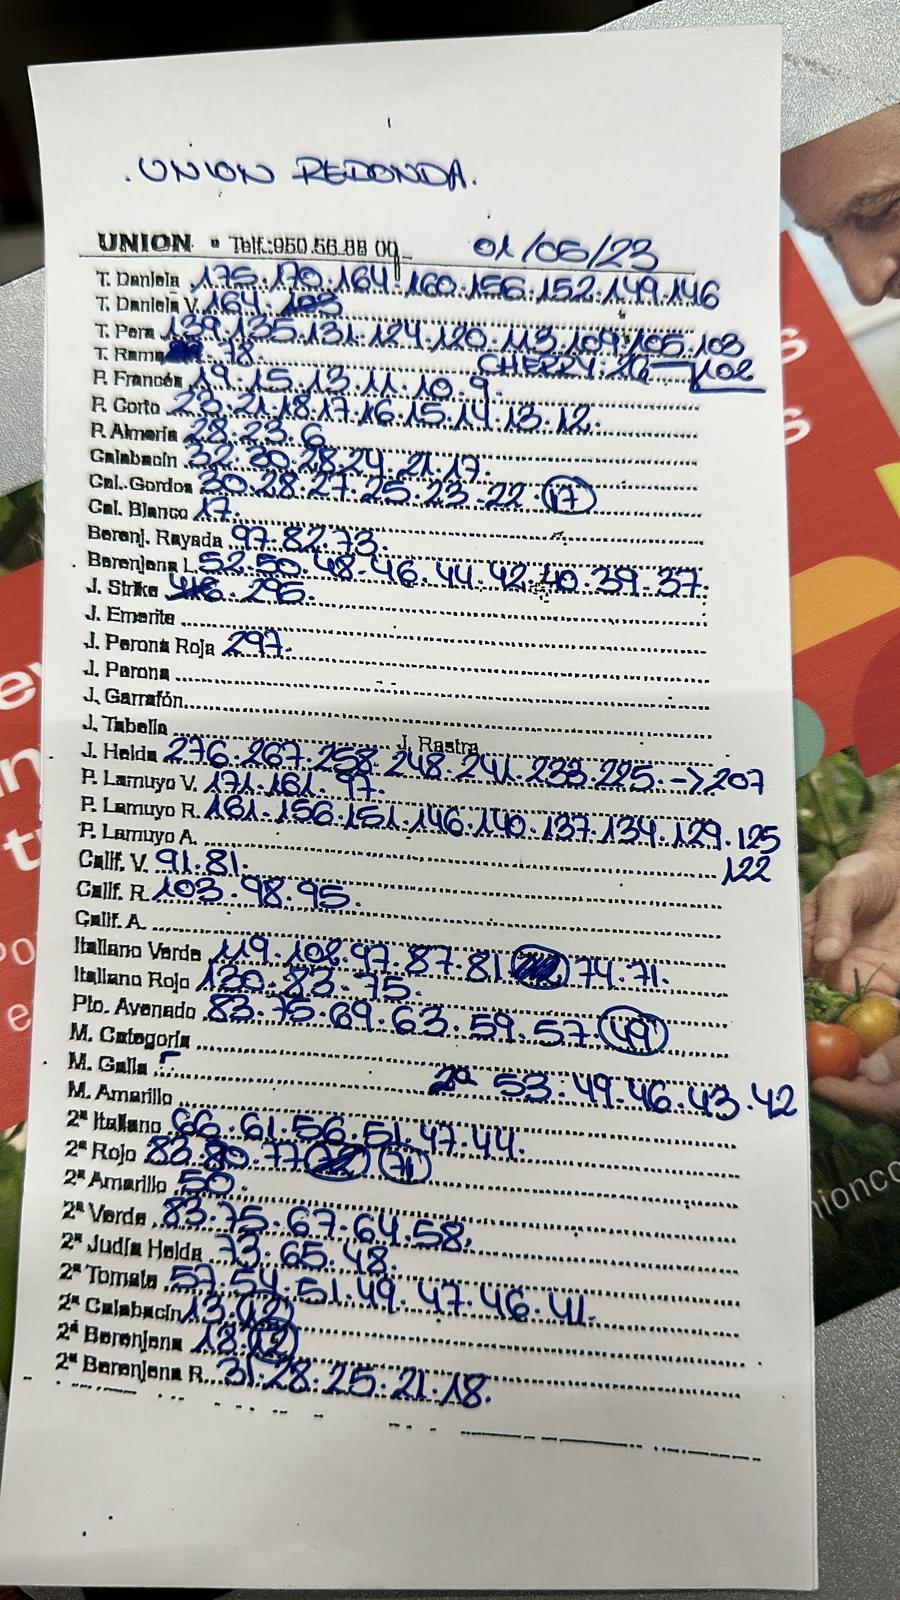 .UNION REDONDA.
UNION Telf.:950.56.88.09 01/05/23
T. Daniela 175.170.164.160.156.152.149.146
T. Daniela V. 164.103
T. Pera 139.135.131.124.120.113.109.105.103
T. Rama 78. CHERRY: 26 102
P. Francés 19.15.13.11.10.9.
P. Corto 23.21.18.17.16.15.14.13.12.
P. Almería 28.23.6
Calabacín 32.30.28.24.21.17.
Cal. Gordos 30.28.27.25.23.22.17
Cal. Blanco 17.
Berenj. Rayada 97.82.73.
Berenjena L. 52.50.48.46.44.42.40.39.37.
J. Strike 295.
J. Emerite
J. Perona Roja 297.
J. Perona
J. Garrafón
J. Tabella J. Rastra
J. Helda 276.267.258.248.241.233.225.->207
P. Lamuyo V. 171.161.97.
P. Lamuyo R. 161.156.151.146.140.137.134.129.125
P. Lamuyo A. 122
Calif. V. 91.81.
Calif. R. 103.98.95.
Calif. A.
Italiano Verde 119.102.97.87.81. 74.71.
Italiano Rojo 130.83.75.
Pto. Avenado 83.75.69.63.59.57.49
M. Categoría
M. Galia 2ª 53.49.46.43.42
M. Amarillo
2ª Italiano 66.61.56.51.47.44.
2ª Rojo 83.80.77 71
2ª Amarillo 50.
2ª Verde 83.75.67.64.58.
2ª Judía Helda 73.65.48.
2ª Tomate 57.54.51.49.47.46.41.
2ª Calabacín 13.12
2ª Berenjena 18.12
2ª Berenjena R. 31.28.25.21.18.